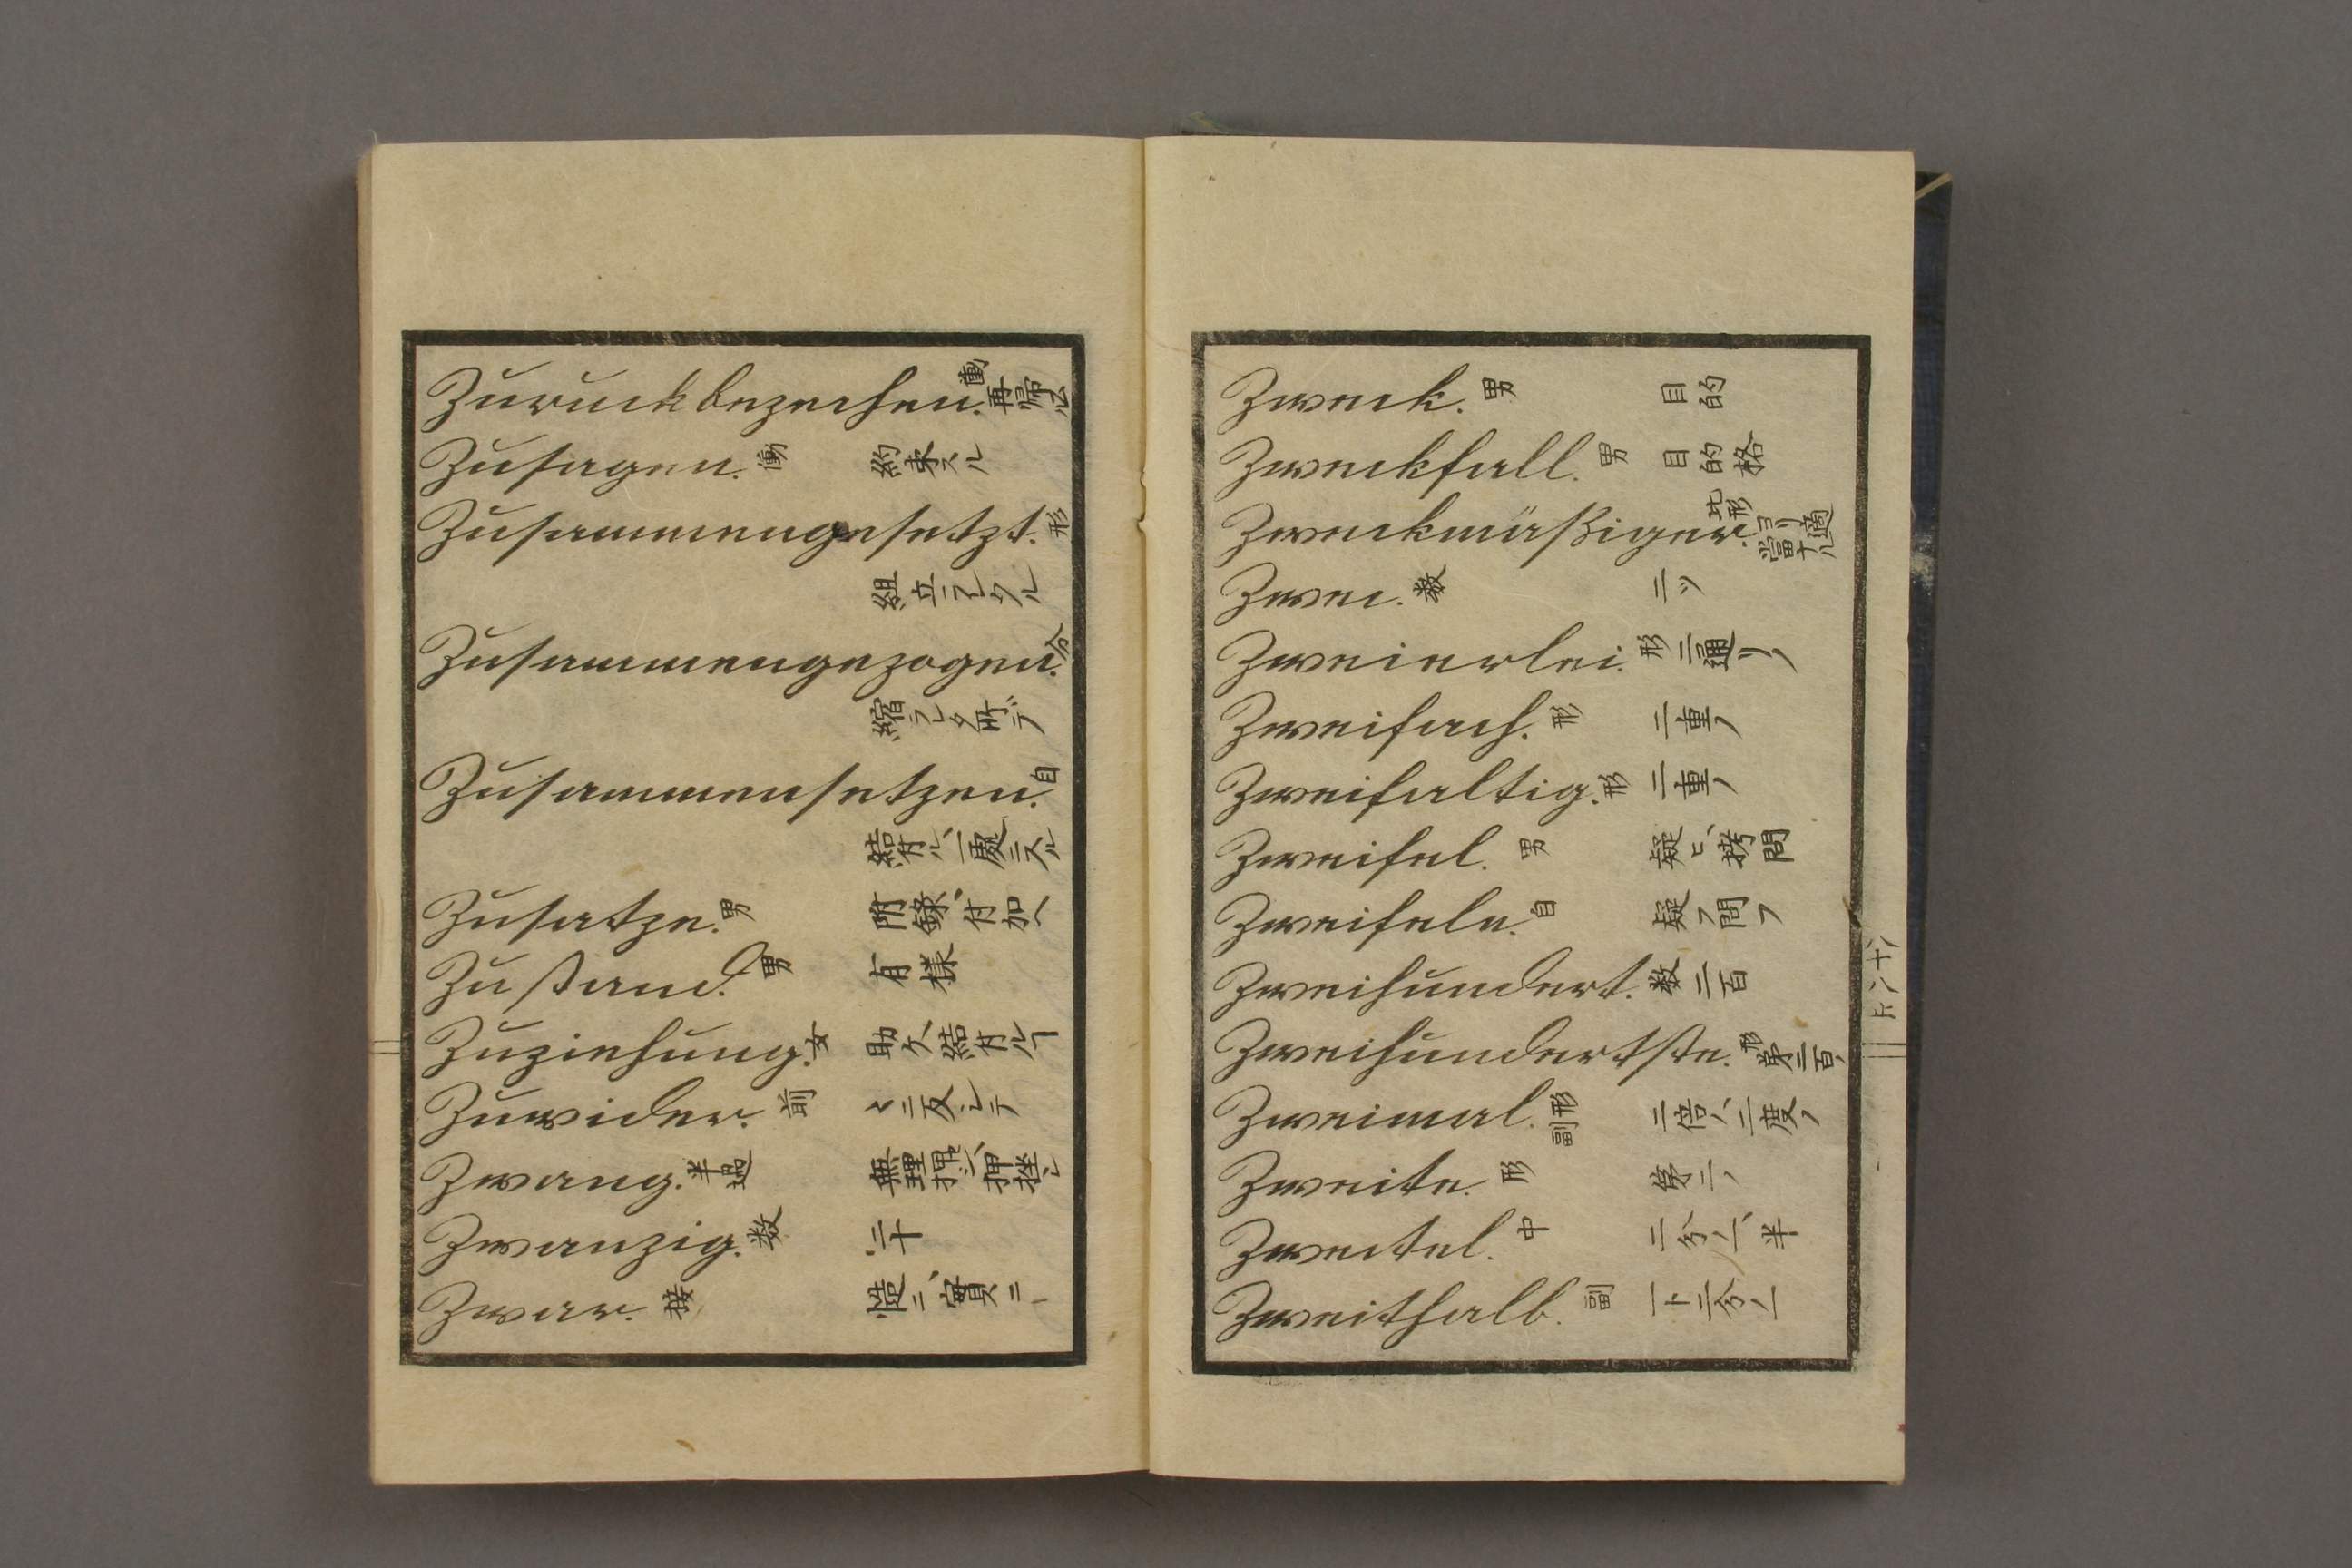 Zurückbezechen. 動 再帰
Zusagen. 働 約束スル
Zusammengesetzt. 形
組立ラレタル
Zusammengezogen. 分
縮ラレタ所デ
Zusammensetzen. 自
結付ル、一處ニスル
Zusatze. 男 附錄、付加ヘ
Zustand. 男 有樣
Zuziehung. 女 助ケ、結付ルヿ
Zuwider. 前 ニ反シテ
Zwang. 無理押
Zwanzig. 数 二十
Zwar. 接 慥ニ、實ニ
Zweck. 男 目的
Zweckfall. 男 目的格
Zweckmäßiger. 比形 ヨリ適當ナル
Zwei. 数 二ツ
Zweierlei. 形 二通リノ
Zweifach. 形 二重ノ
Zweifaltig. 形 二重ノ
Zweifel. 男 疑ヒ、拷問
Zweifeln. 自 疑フ問フ
Zweihundert. 数 二百
Zweihundertste. 形 第二百ノ
Zweimal. 形副 二倍ノ、二度ノ
Zweite. 形 第二ノ
Zweitel. 中 二分ノ一、半
Zweithalb. 副 一ト二分ノ一